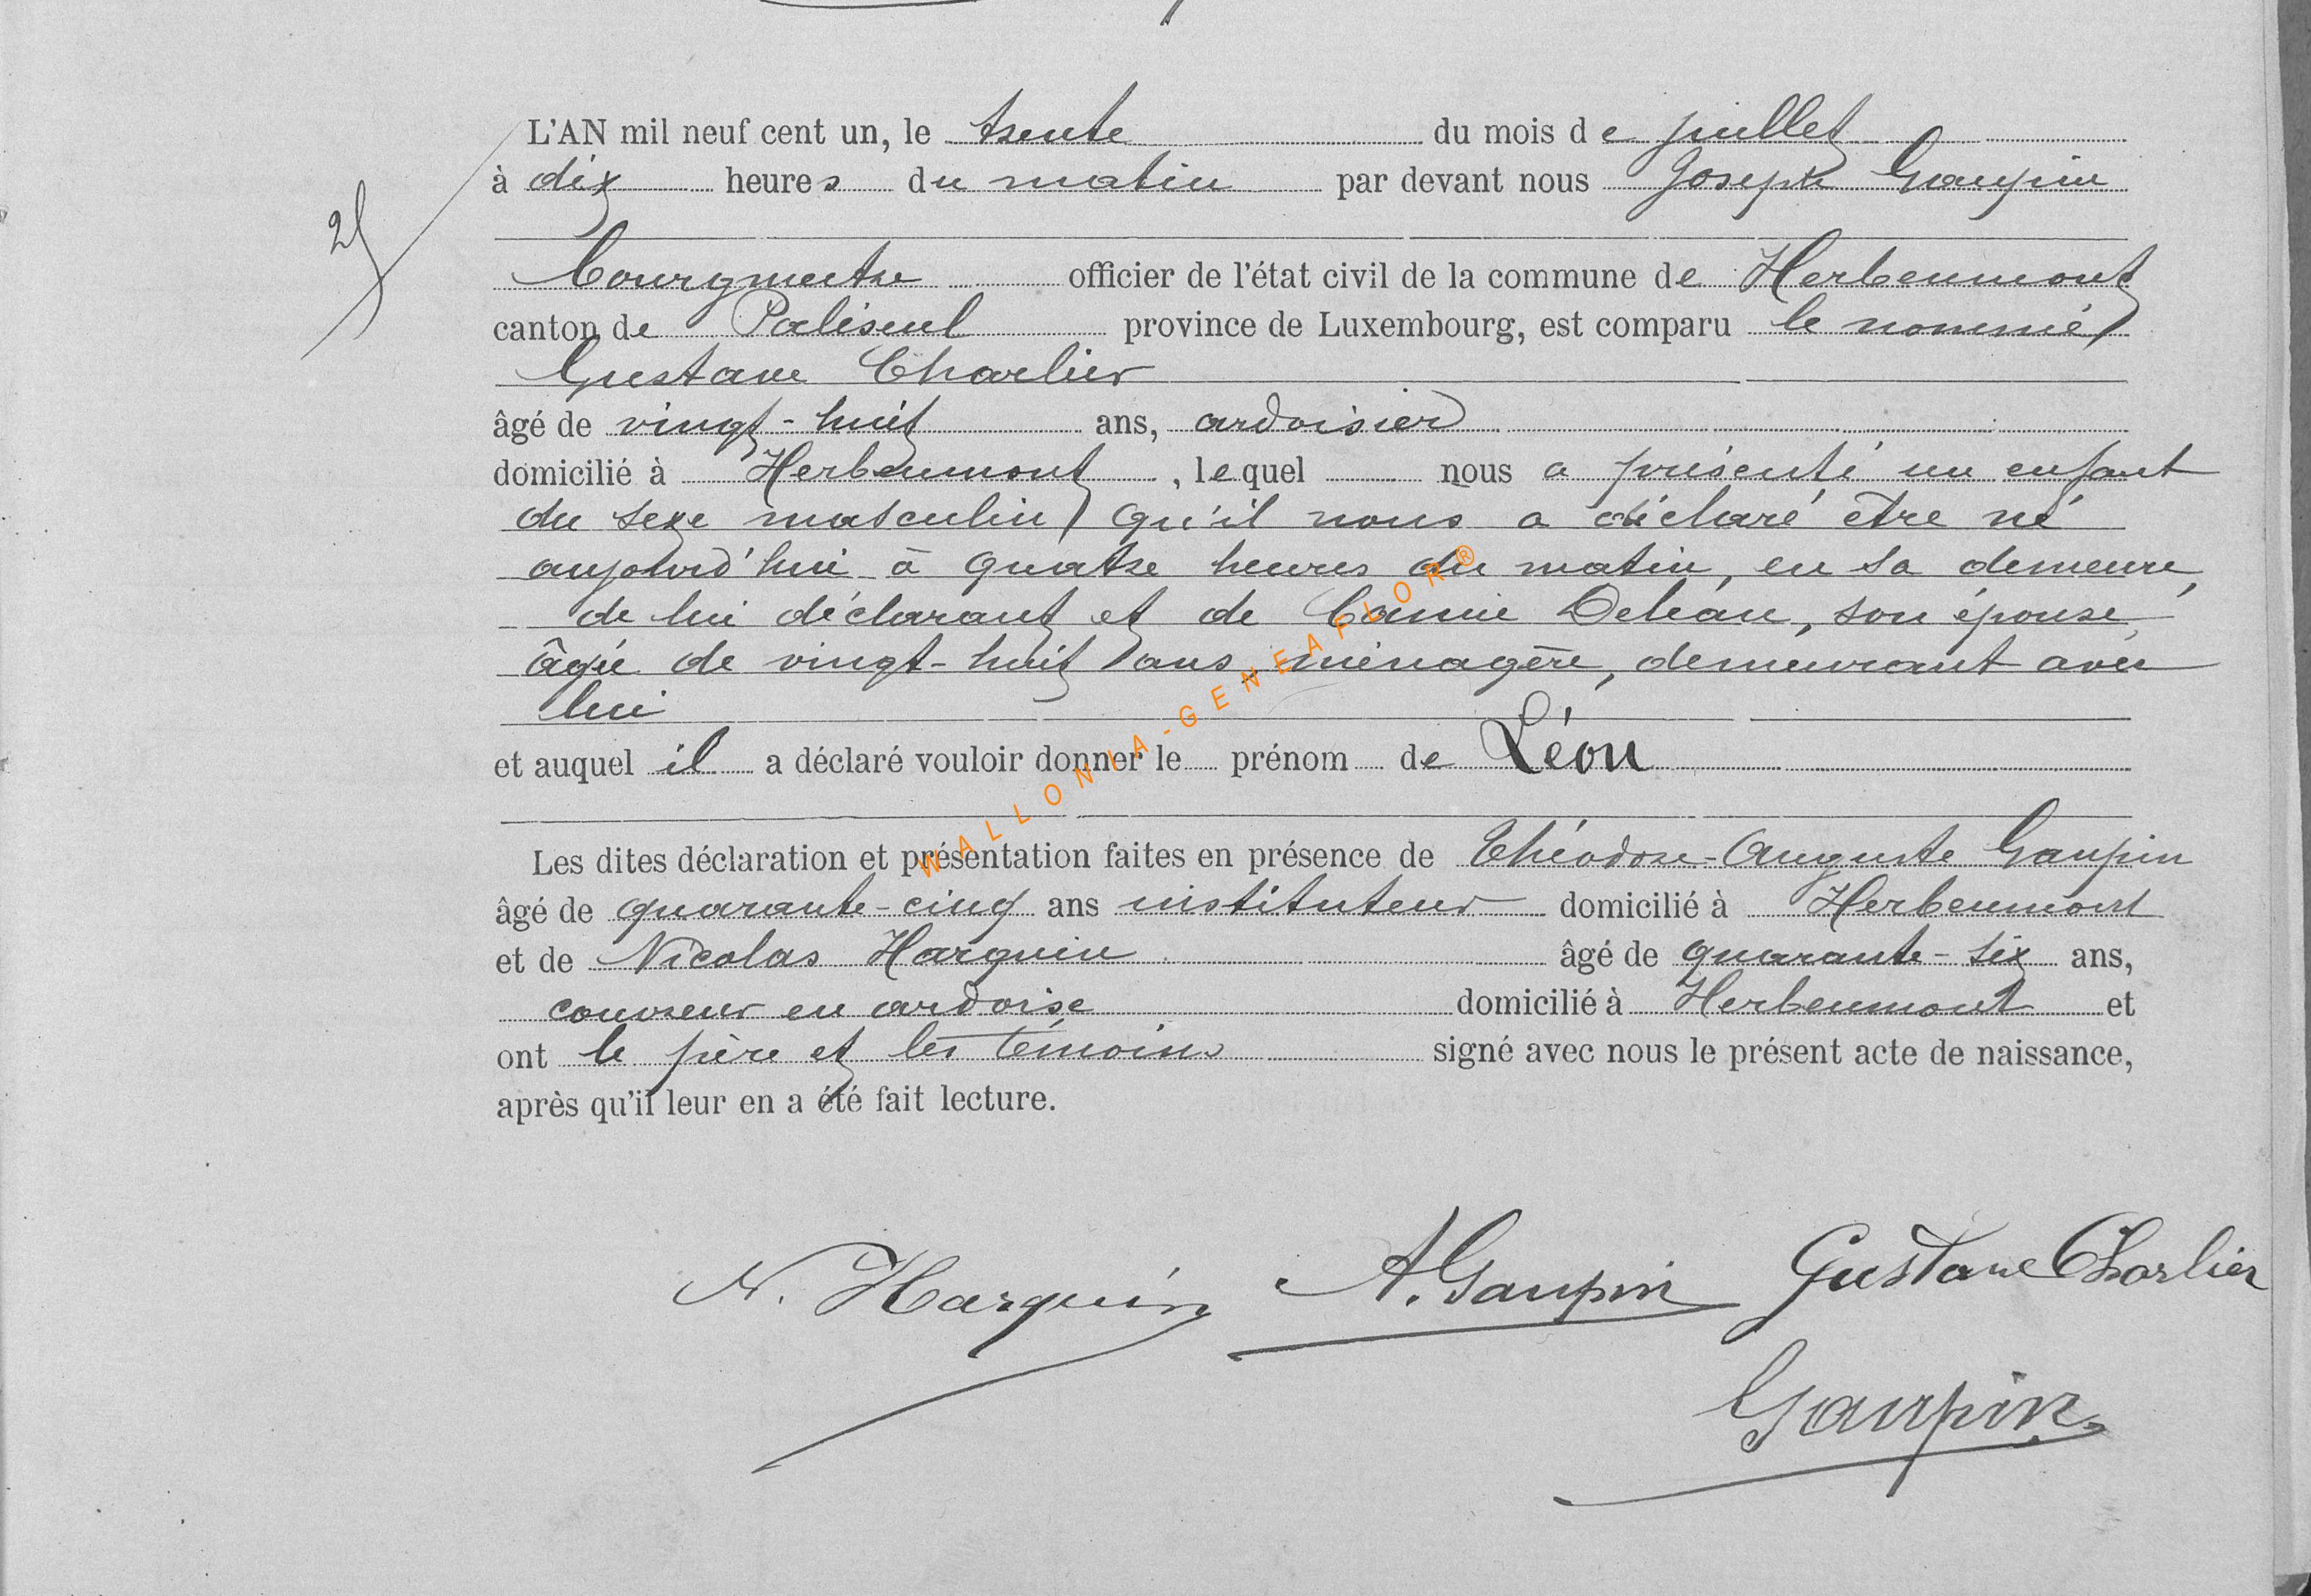 L'AN mil neuf cent un, le trente du mois de juillet
à dix heures du matin par devant nous Joseph Gaupin
25
bourgmestre officier de l'état civil de la commune de Herbeumont
canton de Paliseul province de Luxembourg, est comparu le nommé
Gustave Charlier
âgé de vingt-huit ans, ardoisier
domicilié à Herbeumont, lequel nous a présenté un enfant
du sexe masculin qu'il nous a déclaré être né
aujourd'hui à quatre heures du matin, en sa demeure,
de lui déclarant et de Camie Deléau, son épouse,
âgée de vingt-huit ans, ménagère, demeurant avec
lui
et auquel il a déclaré vouloir donner le prénom de Léon
Les dites déclaration et présentation faites en présence de Théodore-Auguste Gaupin
âgé de quarante-cinq ans instituteur domicilié à Herbeumont
et de Nicolas Harquin âgé de quarante-six ans,
couvreur en ardoise domicilié à Herbeumont et
ont le père et les témoins signé avec nous le présent acte de naissance,
après qu'il leur en a été fait lecture.
N. Harquin A. Gaupin Gustave Charlier
Gaupin
WALLONIA-GENEAFLOR®